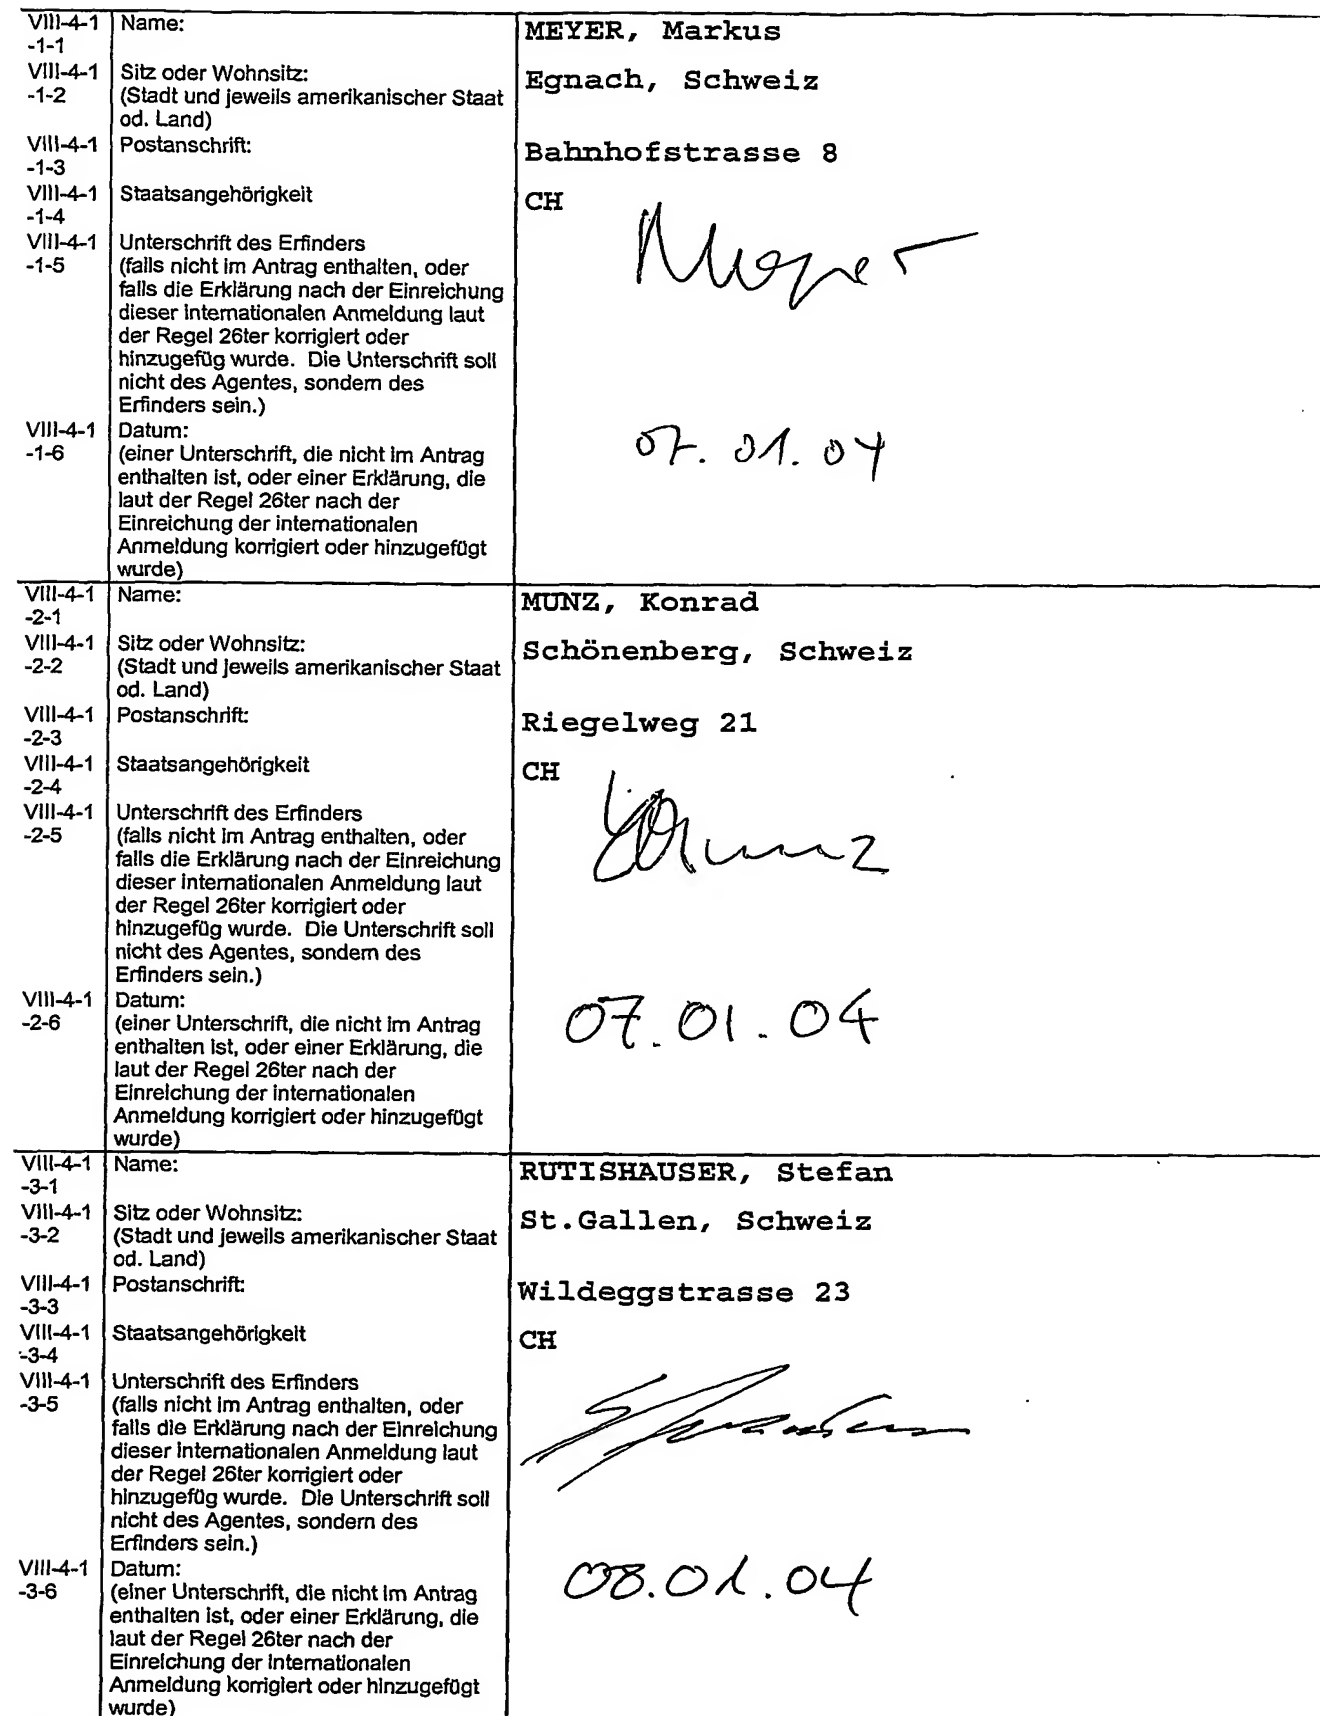 VIII-4-1 Name: MEYER, Markus
-1-1
VIII-4-1 Sitz oder Wohnsitz: Egnach, Schweiz
-1-2 (Stadt und jeweils amerikanischer Staat
od. Land)
VIII-4-1 Postanschrift: Bahnhofstrasse 8
-1-3
VIII-4-1 Staatsangehörigkeit CH
-1-4
VIII-4-1 Unterschrift des Erfinders Meyer
-1-5 (falls nicht im Antrag enthalten, oder
falls die Erklärung nach der Einreichung
dieser internationalen Anmeldung laut
der Regel 26ter korrigiert oder
hinzugefüg wurde. Die Unterschrift soll
nicht des Agentes, sondern des
Erfinders sein.)
VIII-4-1 Datum: 07.01.04
-1-6 (einer Unterschrift, die nicht im Antrag
enthalten ist, oder einer Erklärung, die
laut der Regel 26ter nach der
Einreichung der internationalen
Anmeldung korrigiert oder hinzugefügt
wurde)
VIII-4-1 Name: MUNZ, Konrad
-2-1
VIII-4-1 Sitz oder Wohnsitz: Schönenberg, Schweiz
-2-2 (Stadt und jeweils amerikanischer Staat
od. Land)
VIII-4-1 Postanschrift: Riegelweg 21
-2-3
VIII-4-1 Staatsangehörigkeit CH
-2-4
VIII-4-1 Unterschrift des Erfinders Munz
-2-5 (falls nicht im Antrag enthalten, oder
falls die Erklärung nach der Einreichung
dieser internationalen Anmeldung laut
der Regel 26ter korrigiert oder
hinzugefüg wurde. Die Unterschrift soll
nicht des Agentes, sondern des
Erfinders sein.)
VIII-4-1 Datum: 07.01.04
-2-6 (einer Unterschrift, die nicht im Antrag
enthalten ist, oder einer Erklärung, die
laut der Regel 26ter nach der
Einreichung der internationalen
Anmeldung korrigiert oder hinzugefügt
wurde)
VIII-4-1 Name: RUTISHAUSER, Stefan
-3-1
VIII-4-1 Sitz oder Wohnsitz: St.Gallen, Schweiz
-3-2 (Stadt und jeweils amerikanischer Staat
od. Land)
VIII-4-1 Postanschrift: Wildeggstrasse 23
-3-3
VIII-4-1 Staatsangehörigkeit CH
-3-4
VIII-4-1 Unterschrift des Erfinders
-3-5 (falls nicht im Antrag enthalten, oder
falls die Erklärung nach der Einreichung
dieser internationalen Anmeldung laut
der Regel 26ter korrigiert oder
hinzugefüg wurde. Die Unterschrift soll
nicht des Agentes, sondern des
Erfinders sein.)
VIII-4-1 Datum: 08.01.04
-3-6 (einer Unterschrift, die nicht im Antrag
enthalten ist, oder einer Erklärung, die
laut der Regel 26ter nach der
Einreichung der internationalen
Anmeldung korrigiert oder hinzugefügt
wurde)